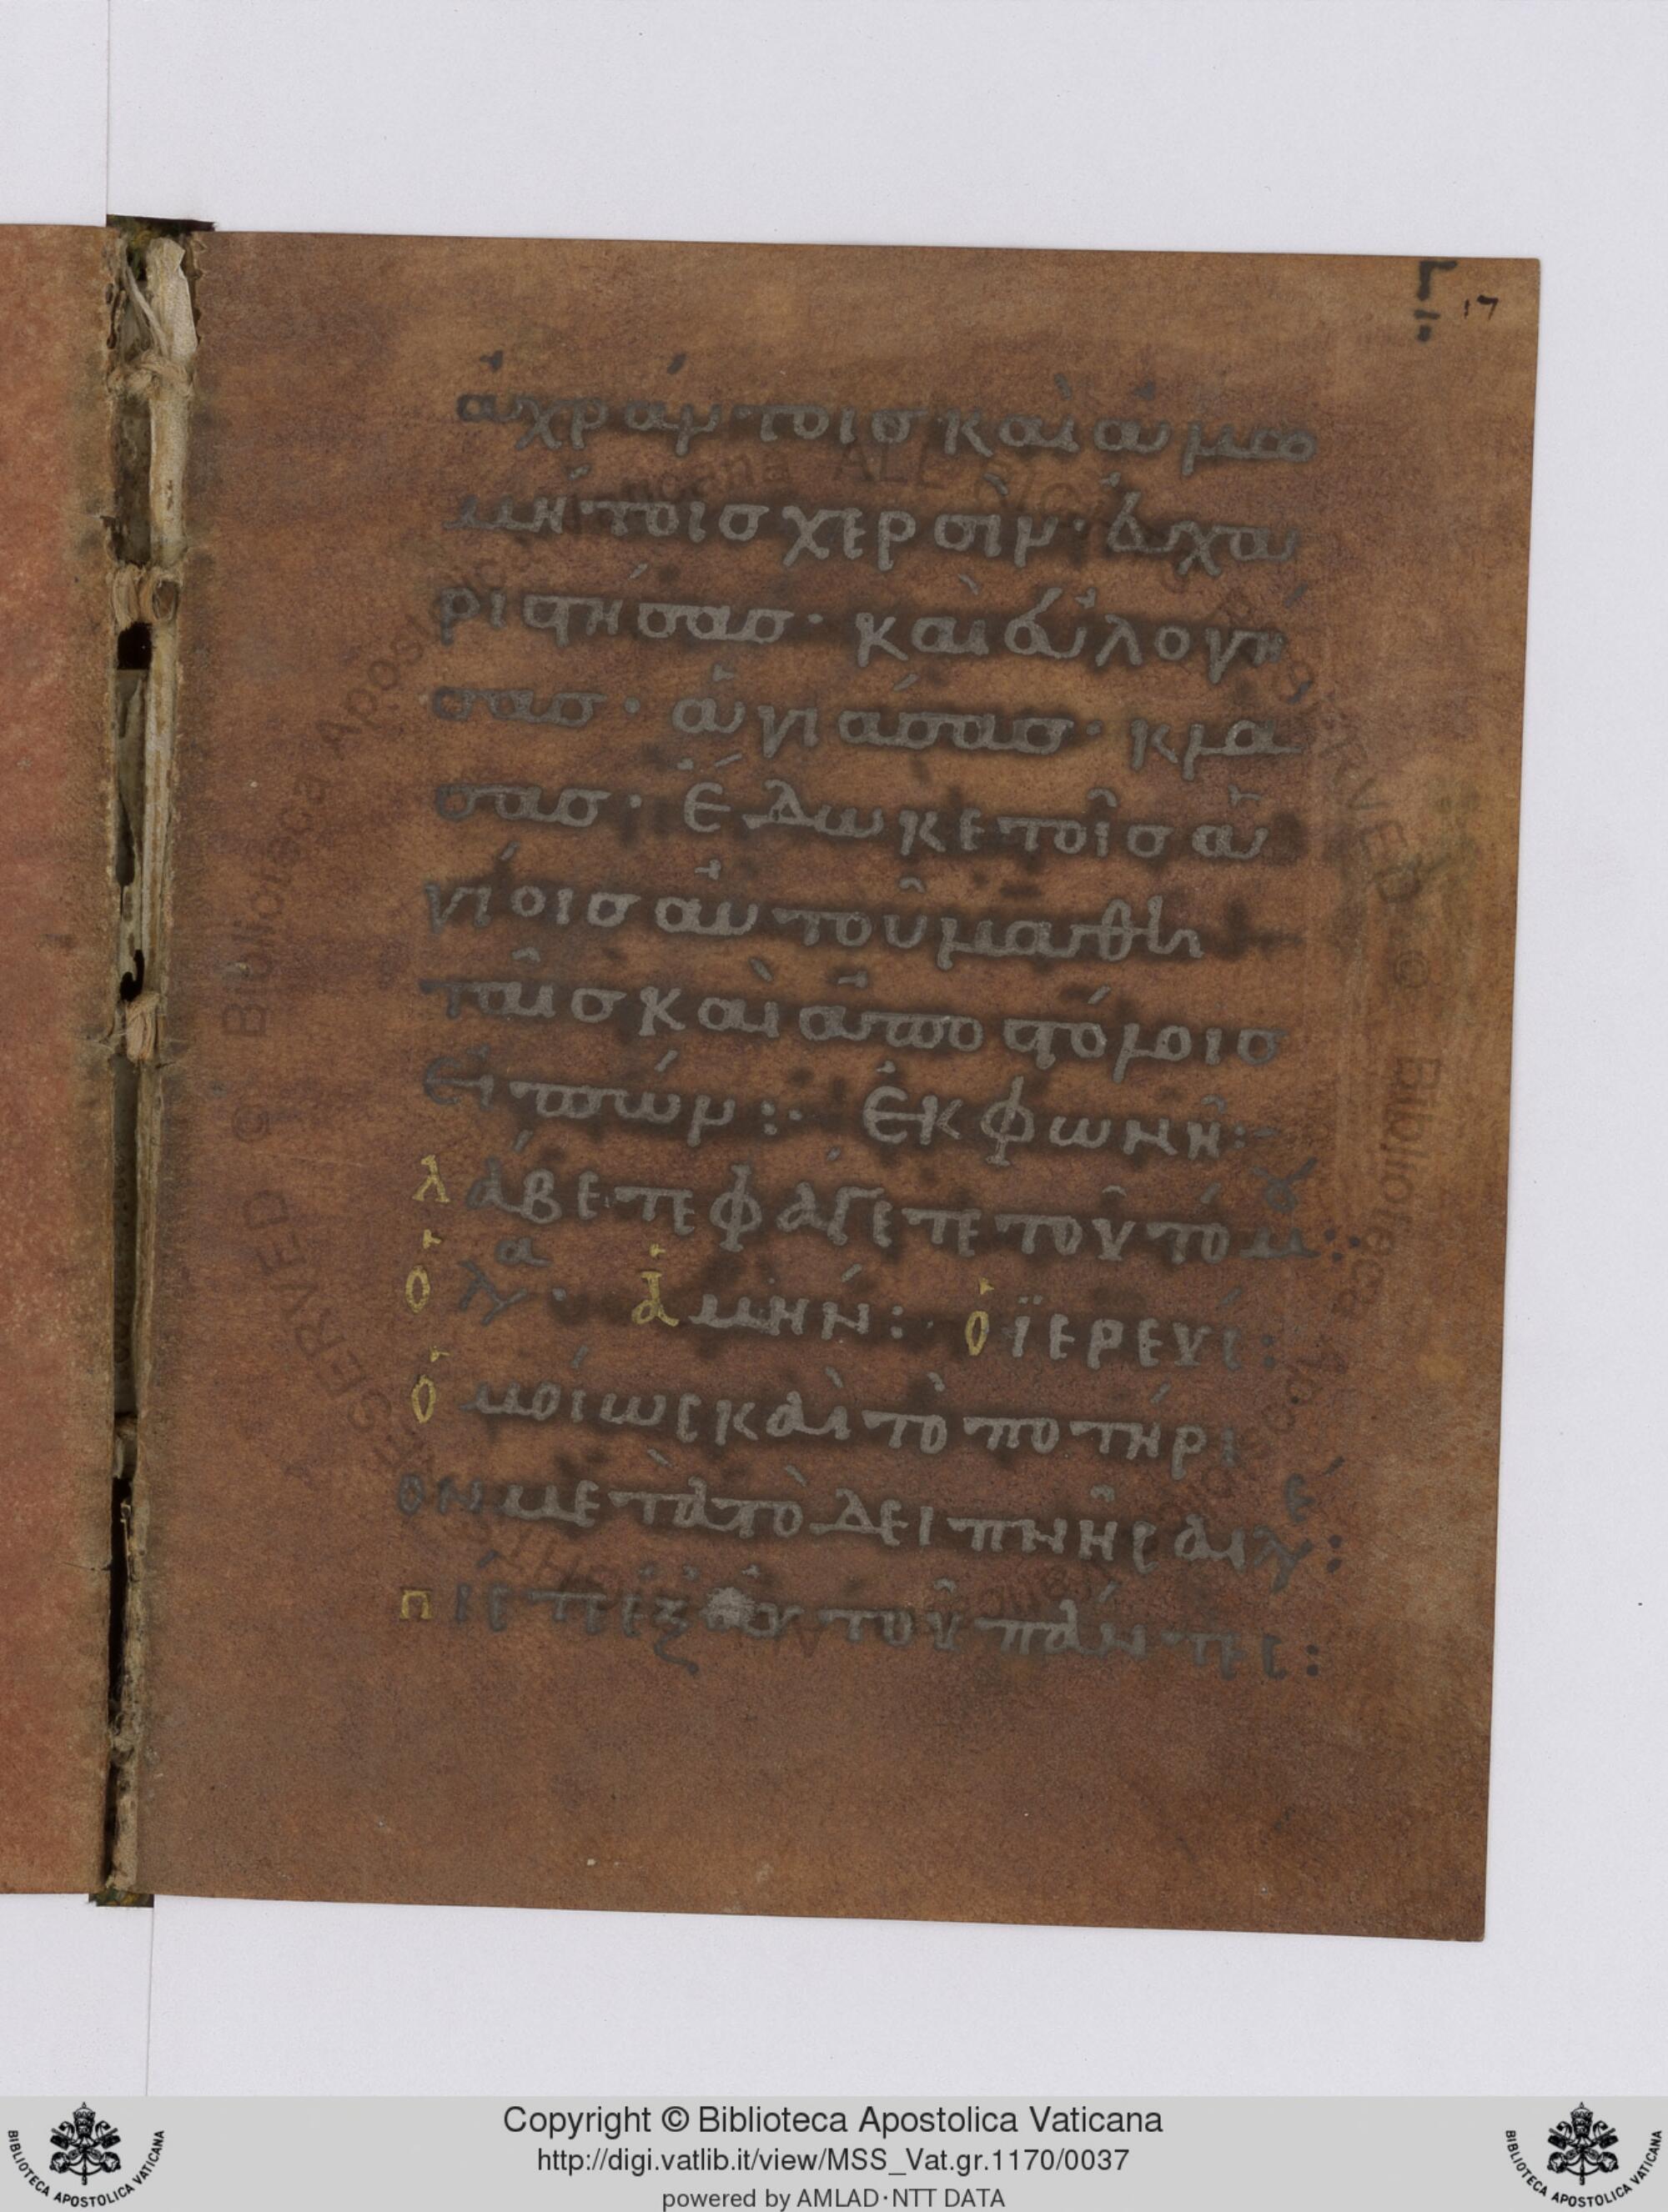 Γ 17
ἀχράντοις καὶ ἀμω
μήτοις χερσὶν· εὐχα
ριστήσας· καὶ εὐλογή
σας· ἁγιάσας· κλά
σας· ἔδωκε τοῖς ἁ
γίοις αὐτοῦ μαθη
ταῖς καὶ ἀποστόλοις
εἰπών:· ἐκφωνή:
λάβετε φάγετε τοῦτό μου:
ὁ λα· ἀμήν:· ὁ ἱερεύς:
ὁμοίως καὶ τὸ ποτήρι
ον μετὰ τὸ δειπνῆσαι λέγ:
πίετε ἐξ αὐτοῦ πάντες:
Copyright © Biblioteca Apostolica Vaticana
http://digi.vatlib.it/view/MSS_Vat.gr.1170/0037
powered by AMLAD·NTT DATA
BIBLIOTECA APOSTOLICA VATICANA
BIBLIOTECA APOSTOLICA VATICANA